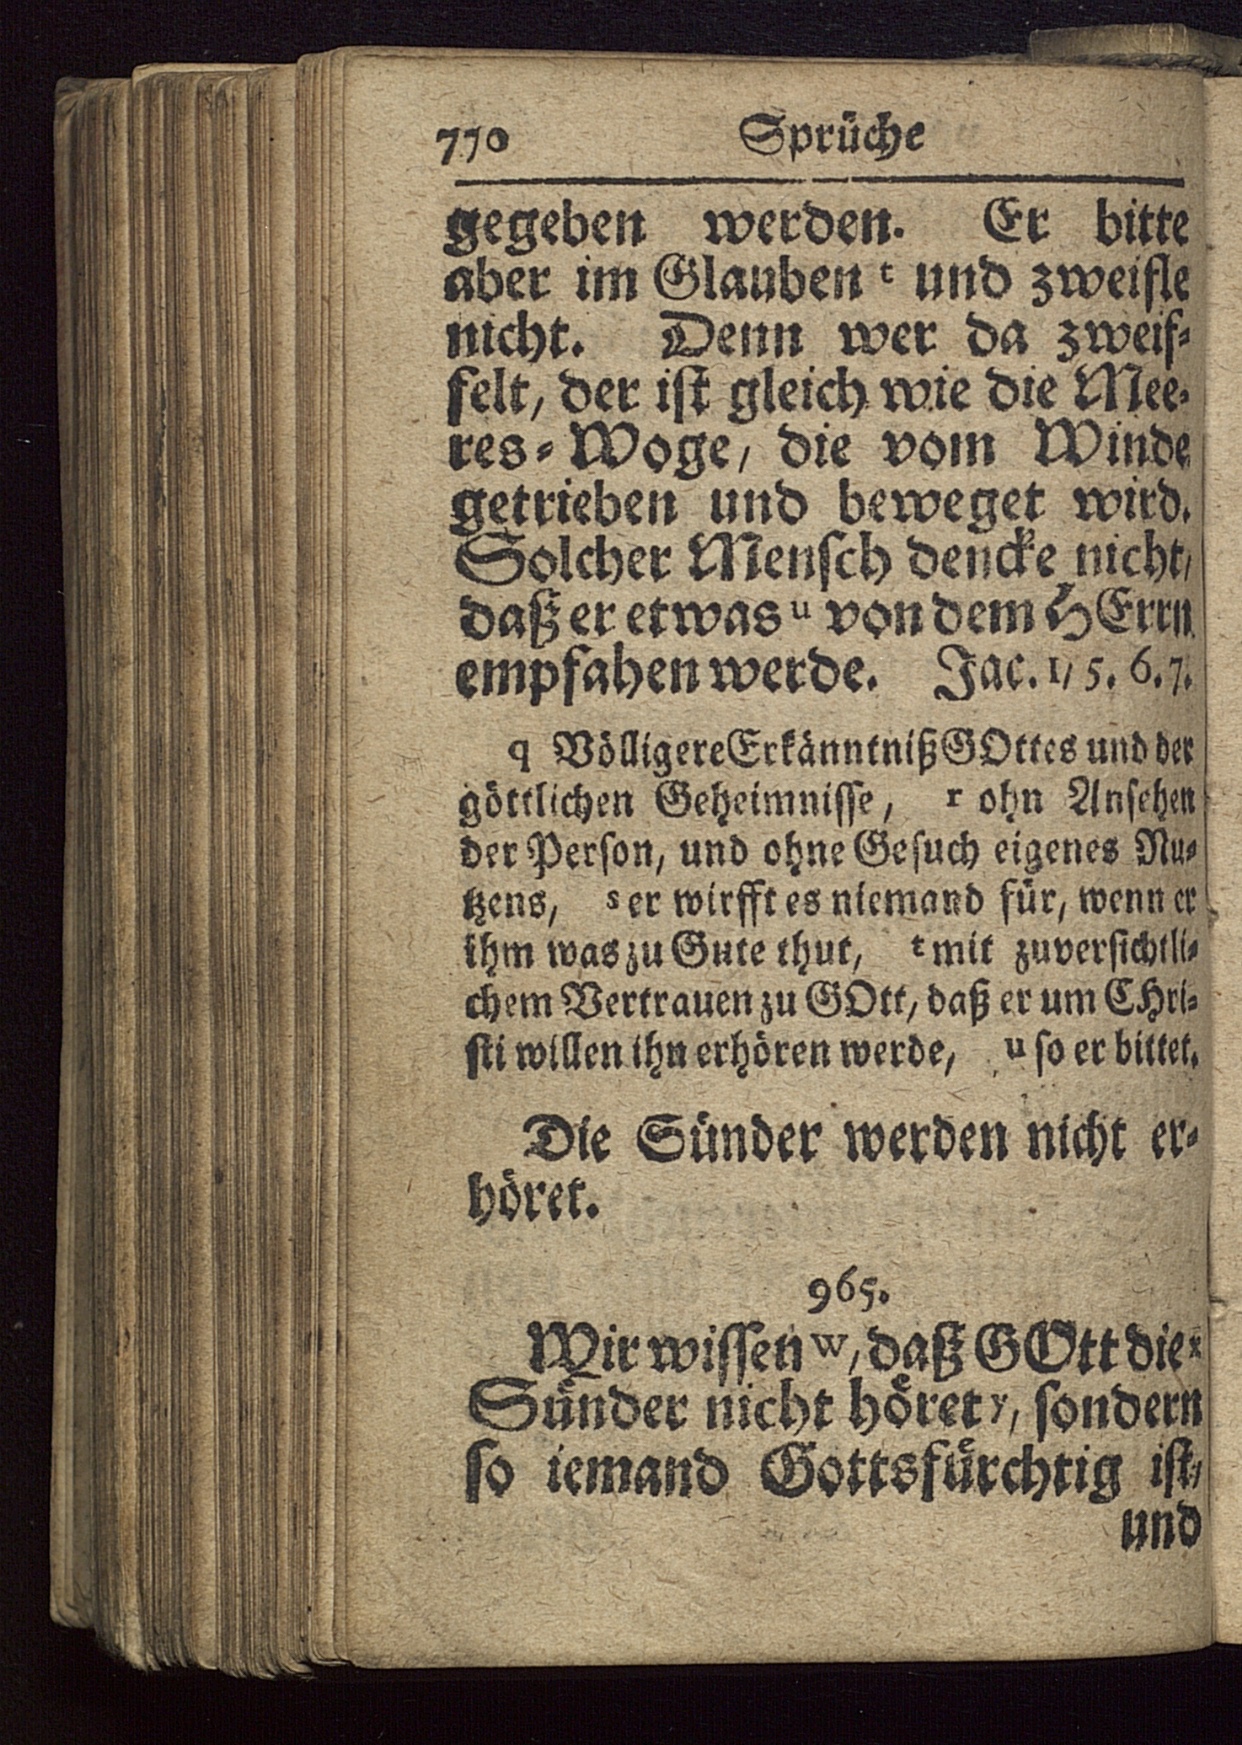 770 Sprüche
gegeben werden. Er bitte
aber im Glauben t und zweifle
nicht. Denn wer da zweif-
felt, der ist gleich wie die Mee-
res-Woge, die vom Winde
getrieben und beweget wird.
Solcher Mensch dencke nicht,
daß er etwas u von dem HErrn
empfahen werde. Jac. 1, 5. 6. 7.
q Völligere Erkänntniß GOttes und der
göttlichen Geheimnisse, r ohn Ansehen
der Person, und ohne Gesuch eigenes Nu-
tzens, s er wirfft es niemand für, wenn er
ihm was zu Gute thut, t mit zuversichtli-
chem Vertrauen zu GOtt, daß er um CHri-
sti willen ihn erhören werde, u so er bittet.
Die Sünder werden nicht er-
höret.
965.
Wir wissen w, daß GOtt die x
Sünder nicht höret y, sondern
so iemand Gottsfürchtig ist,
und